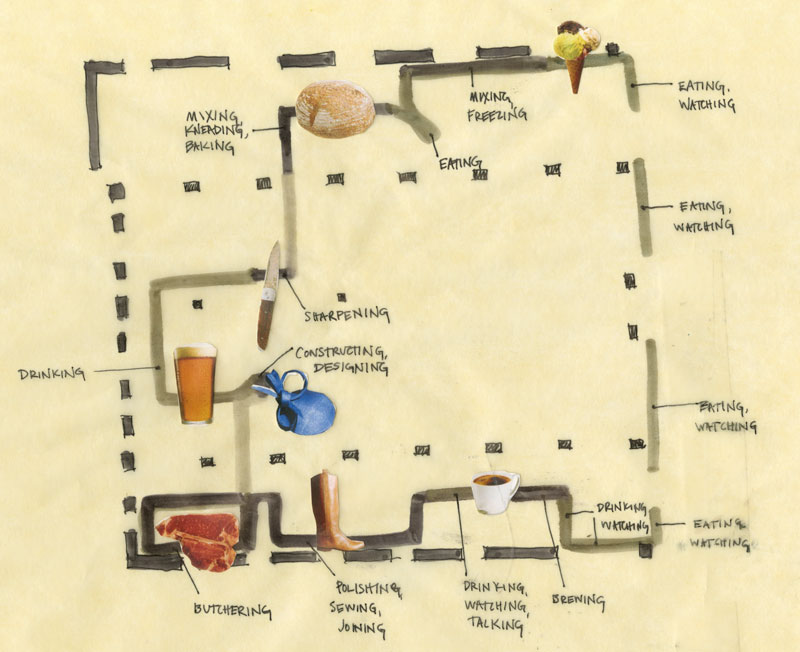 MIXING,
KNEADING,
BAKING
MIXING,
FREEZING
EATING,
WATCHING
EATING
EATING,
WATCHING
SHARPENING
CONSTRUCTING,
DESIGNING
DRINKING
EATING,
WATCHING
DRINKING
WATCHING
EATING
WATCHING
BUTCHERING
POLISHING,
SEWING,
JOINING
DRINKING,
WATCHING,
TALKING
BREWING